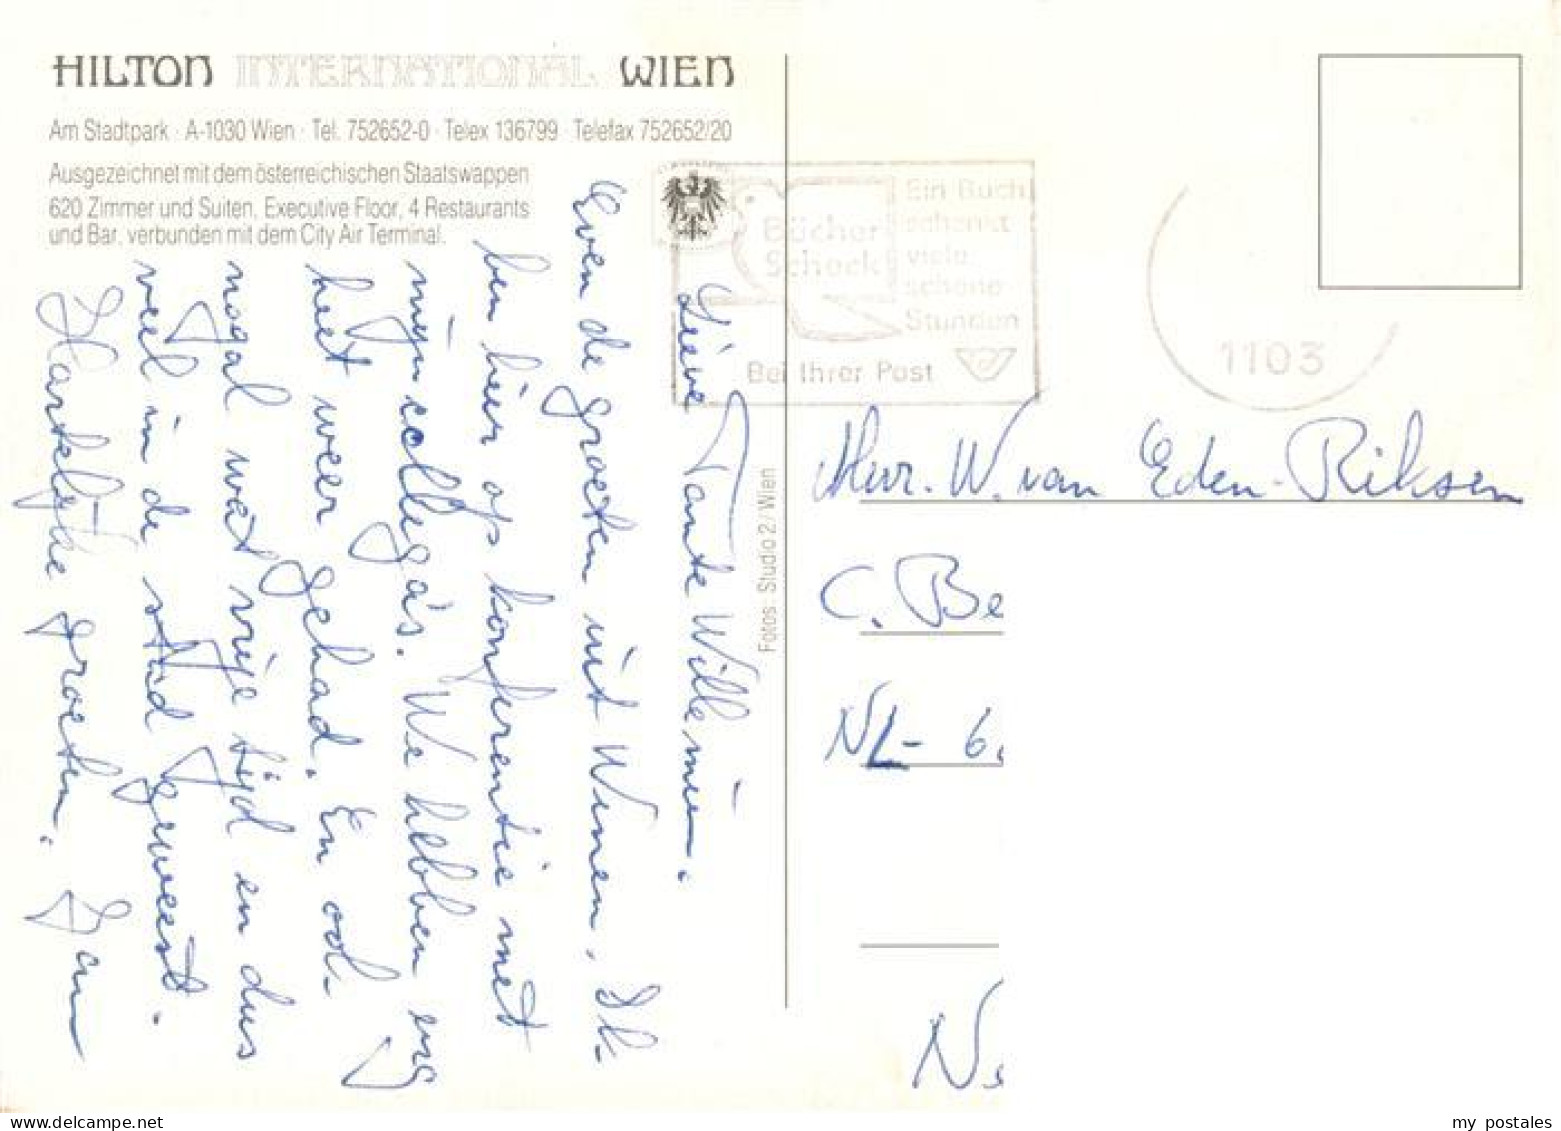 HILTON INTERNATIONAL WIEN
Am Stadtpark · A-1030 Wien · Tel. 752652-0 · Telex 136799 · Telefax 752652/20
Ausgezeichnet mit dem österreichischen Staatswappen
620 Zimmer und Suiten, Executive Floor, 4 Restaurants
und Bar, verbunden mit dem City Air Terminal.
Lieve Tante Willemien.
Even de groeten uit Wenen. Ik
ben hier op konferentie met
mijn collega's. We hebben erg
het weer gehad. En ook
nogal wat vrije tijd en dus
veel in de stad geweest.
Hartelijke groeten. Jan
Fotos: Studio 2/Wien
Bücher
Schack
Ein Buch
schenkt
viele
schöne
Stunden
Bei Ihrer Post
1103
Mevr. W. van Eden-Riksen
C. Be
NL- 6
N
my postales